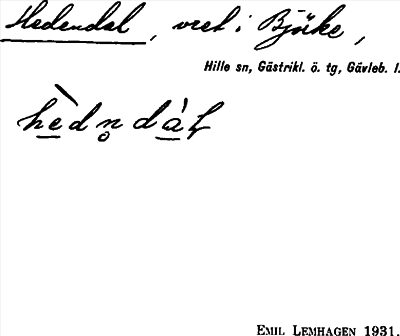 Hedendal, vret i Björke,
Hille sn, Gästrikl. ö. tg, Gävleb. l.
hèdn̥dàł
EMIL LEMHAGEN 1931.